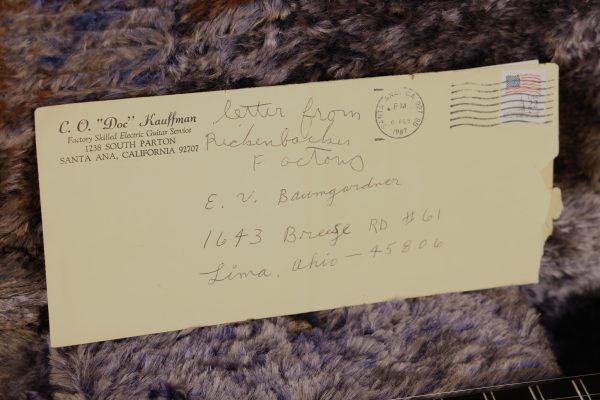 C. O. "Doc" Kauffman
Factory Skilled Electric Guitar Service
1238 SOUTH PARTON
SANTA ANA, CALIFORNIA 92707
letter from
Rickenbacker
Factory
SANTA ANA, CA
PM
6 FEB
1987
E. V. Baumgardner
1643 Breese RD #61
Lima, Ohio - 45806